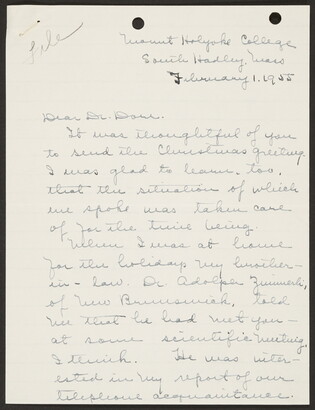 file
Mount Holyoke College
South Hadley, Mass
February 1, 1955
Dear Dr. Doan.
It was thoughtful of you
to send the Christmas greeting.
I was glad to learn, too,
that the situation of which
we spoke was taken care
of for the time being.
When I was at home
for the holiday my brother-
in-law, Dr. Adolph
of New Brunswick, told
me that he had met you—
at some scientific meeting,
I think. He was inter-
ested in my report of our
telephone acquaintance.